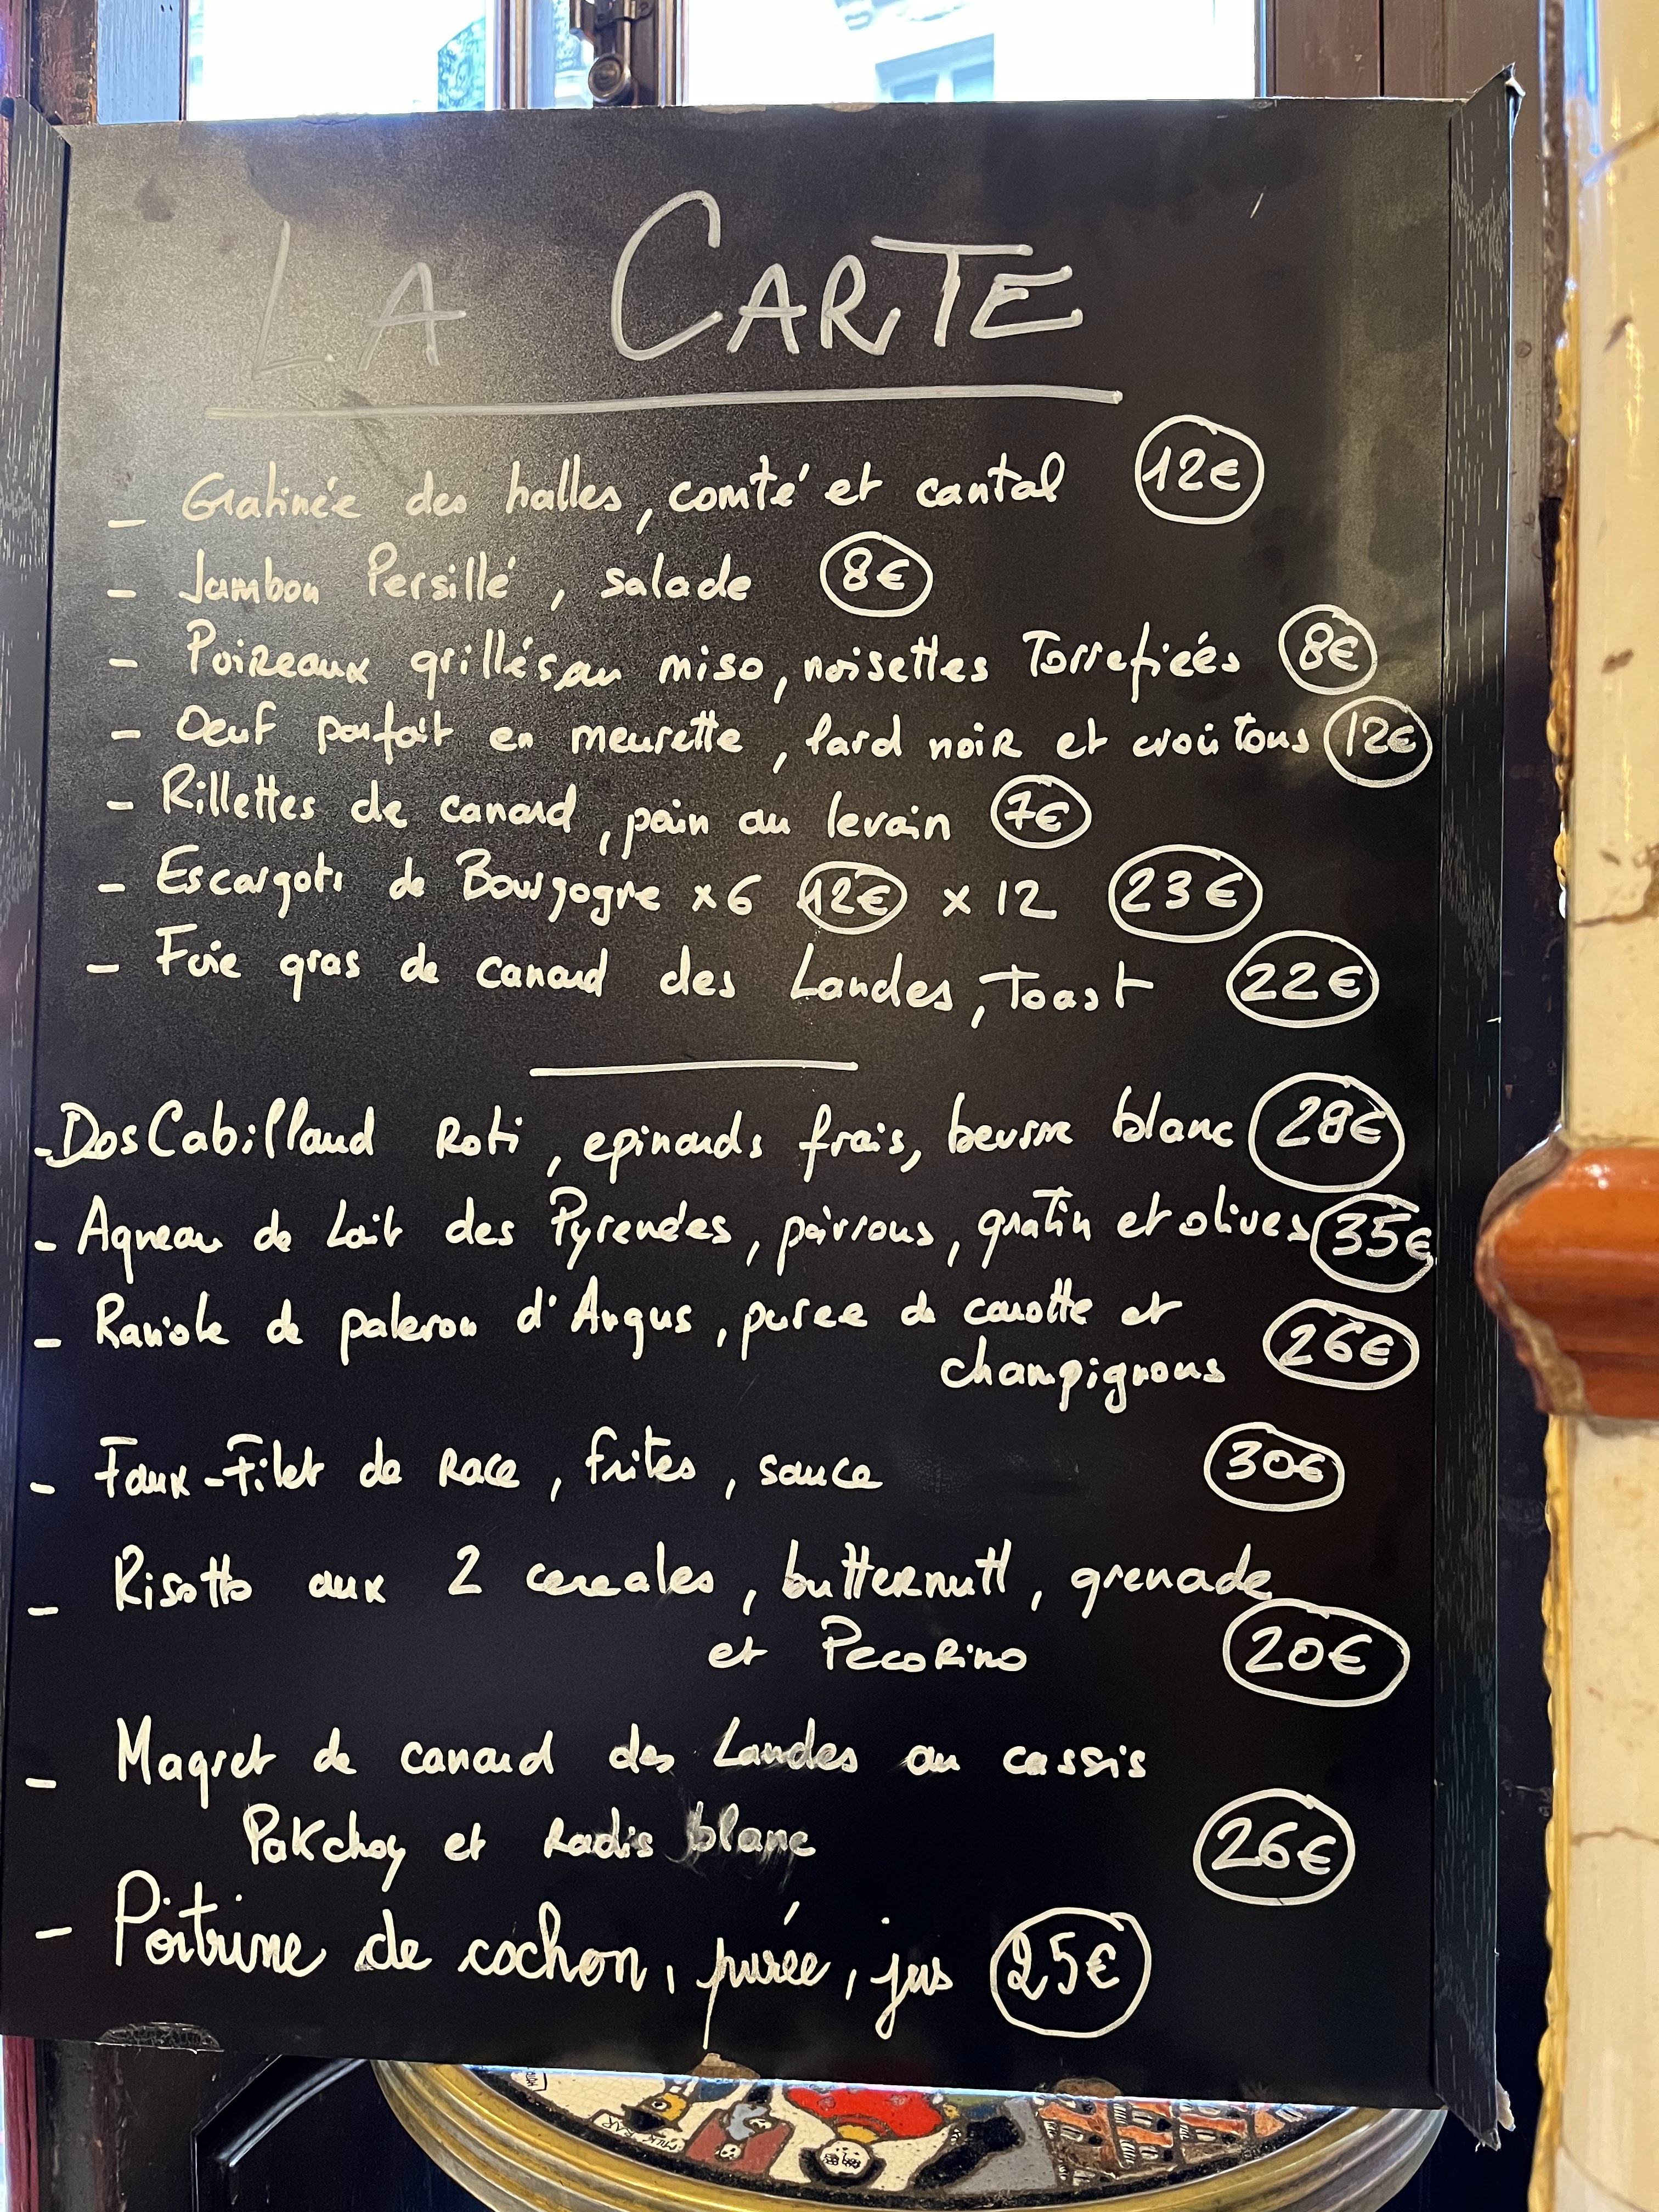 LA CARTE
- Gratinée des halles, comté et cantal 12€
- Jambon Persillé, salade 8€
- Poireaux grillés au miso, noisettes Torrefieés 8€
- Oeuf parfait en meurette, lard noir et croûtons 12€
- Rillettes de canard, pain au levain 7€
- Escargots de Bourgogne x6 12€ x12 23€
- Foie gras de canard des Landes, Toast 22€
- Dos Cabillaud Roti, epinards frais, beurre blanc 28€
- Agneau de Lait des Pyrenées, poivrous, gratin et olives 35€
- Raviole de paleron d'Angus, puree de carotte et
champignons 26€
- Faux-Filet de Race, frites, sauce 30€
- Risotto aux 2 cereales, butternutt, grenade
et Pecorino 20€
- Magret de canard des Landes au cassis
Pakchoy et Radis blanc 26€
- Poitrine de cochon, purée, jus 25€
MILK BAR